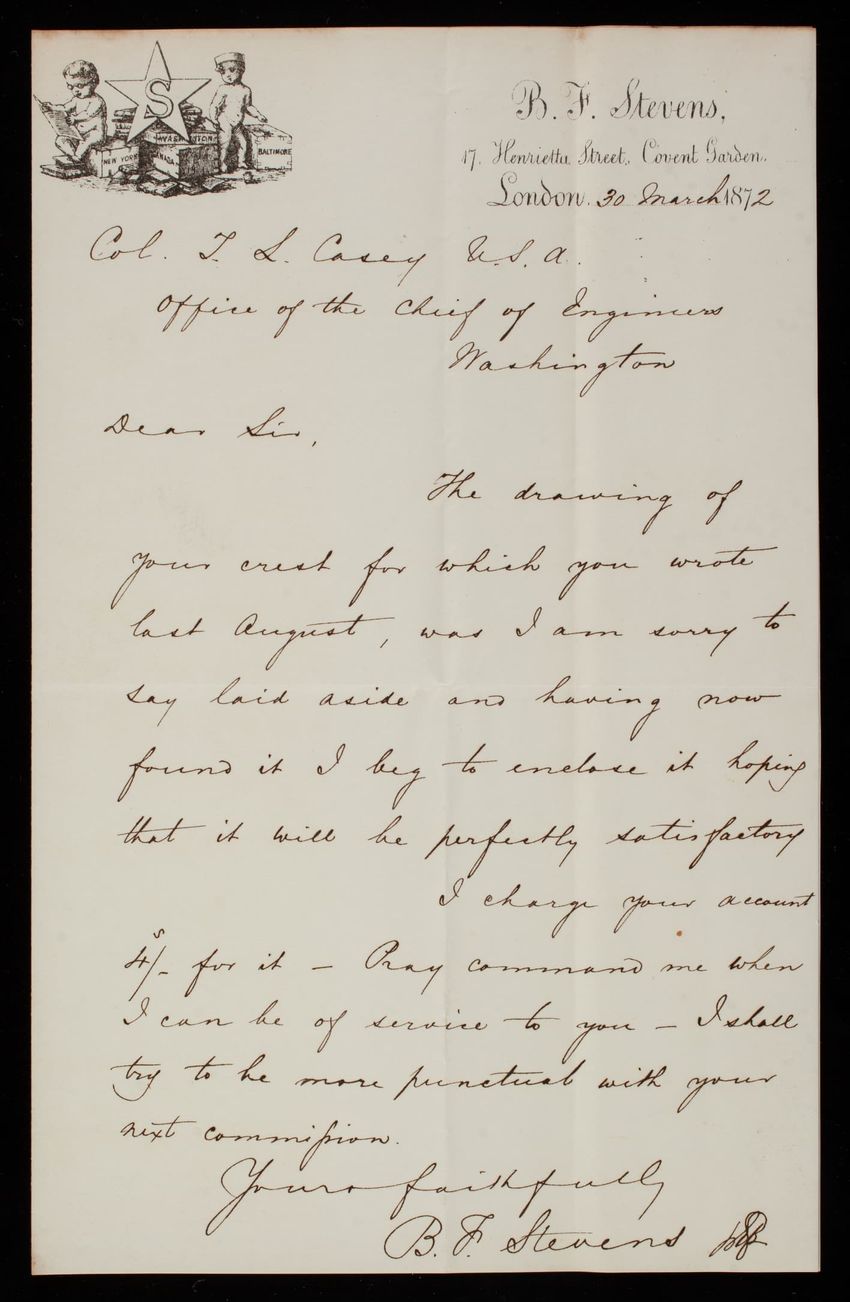 S
WASHINGTON
NEW YORK
CANADA
BALTIMORE
B. F. Stevens,
17. Henrietta Street, Covent Garden.
London. 30 March 1872
Col. T. L. Casey U.S.A.
Office of the Chief of Engineers
Washington
Dear Sir,
The drawing of
your crest for which you wrote
last August, was I am sorry to
say laid aside and having now
found it I beg to enclose it hoping
that it will be perfectly satisfactory
I charge your account
4s/- for it – Pray command me when
I can be of service to you – I shall
try to be more punctual with your
next commission.
Yours faithfully
B. F. Stevens